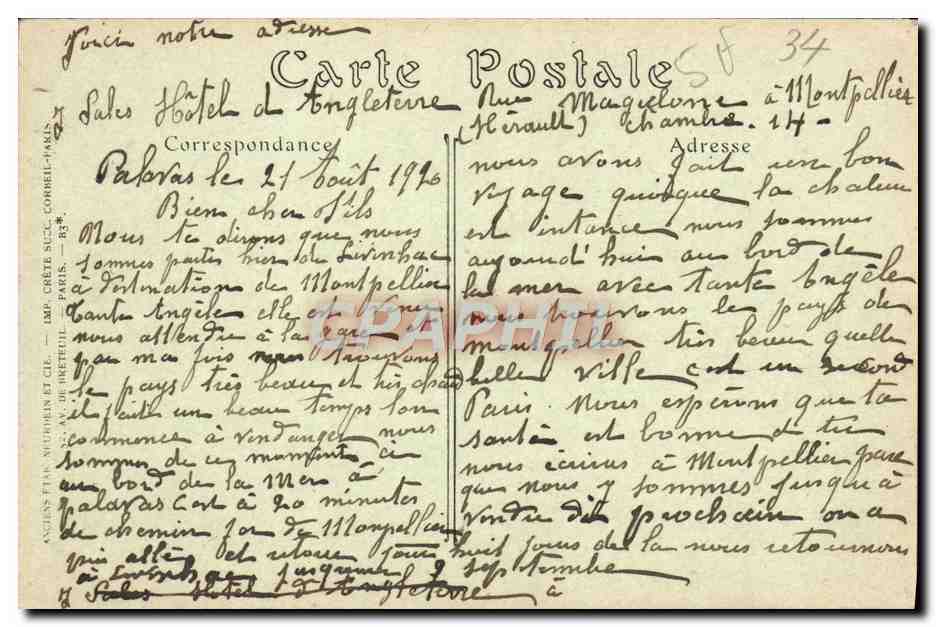 Voici notre adresse
34
Carte Postale
J Sales Hôtel d Angleterre Rue Maguelone à Montpellier
(Hérault) chambre. 14 -
Correspondance
Adresse
Palavas le 21 Août 1920
Bien cher fils
Nous te dirons que nous
sommes partis hier de Livinhac
à destination de Montpellier
Tante Angèle elle est venu
nous attendu à la gare et
par ma fois nous trouvons
le pays très beau et très chaud
il fait un beau temps lon
commence à vendanger nous
sommes de ce moment ci
au bord de la Mer à
palavas c'est à 20 minutes
de chemin fer de Monpellier
pri allé et retour
à Livinhac, jusqueau 2
J Sales Hotel d'Angleterre à
nous avons fait un bon
voyage quoique la chaleur
est intance nous sommes
aujourd'hui au bord de
la mer avec tante Angèle
nous trouvons le pays de
montpellier très beau quelle
belle ville c'est un second
Paris. Nous espérons que ta
santé est bonne et tu
nous écriras à Montpellier parce
que nous y sommes jusqu'à
vendredi prochain on a
huit jours de la nous retournons
septembre
ANCIENS ETAB. NEURDEIN ET CIE. — IMP. CRÉTÉ SUCC. CORBEIL-PARIS
AV. DE BRETEUIL. — PARIS. — B3*.
CPAPHIL